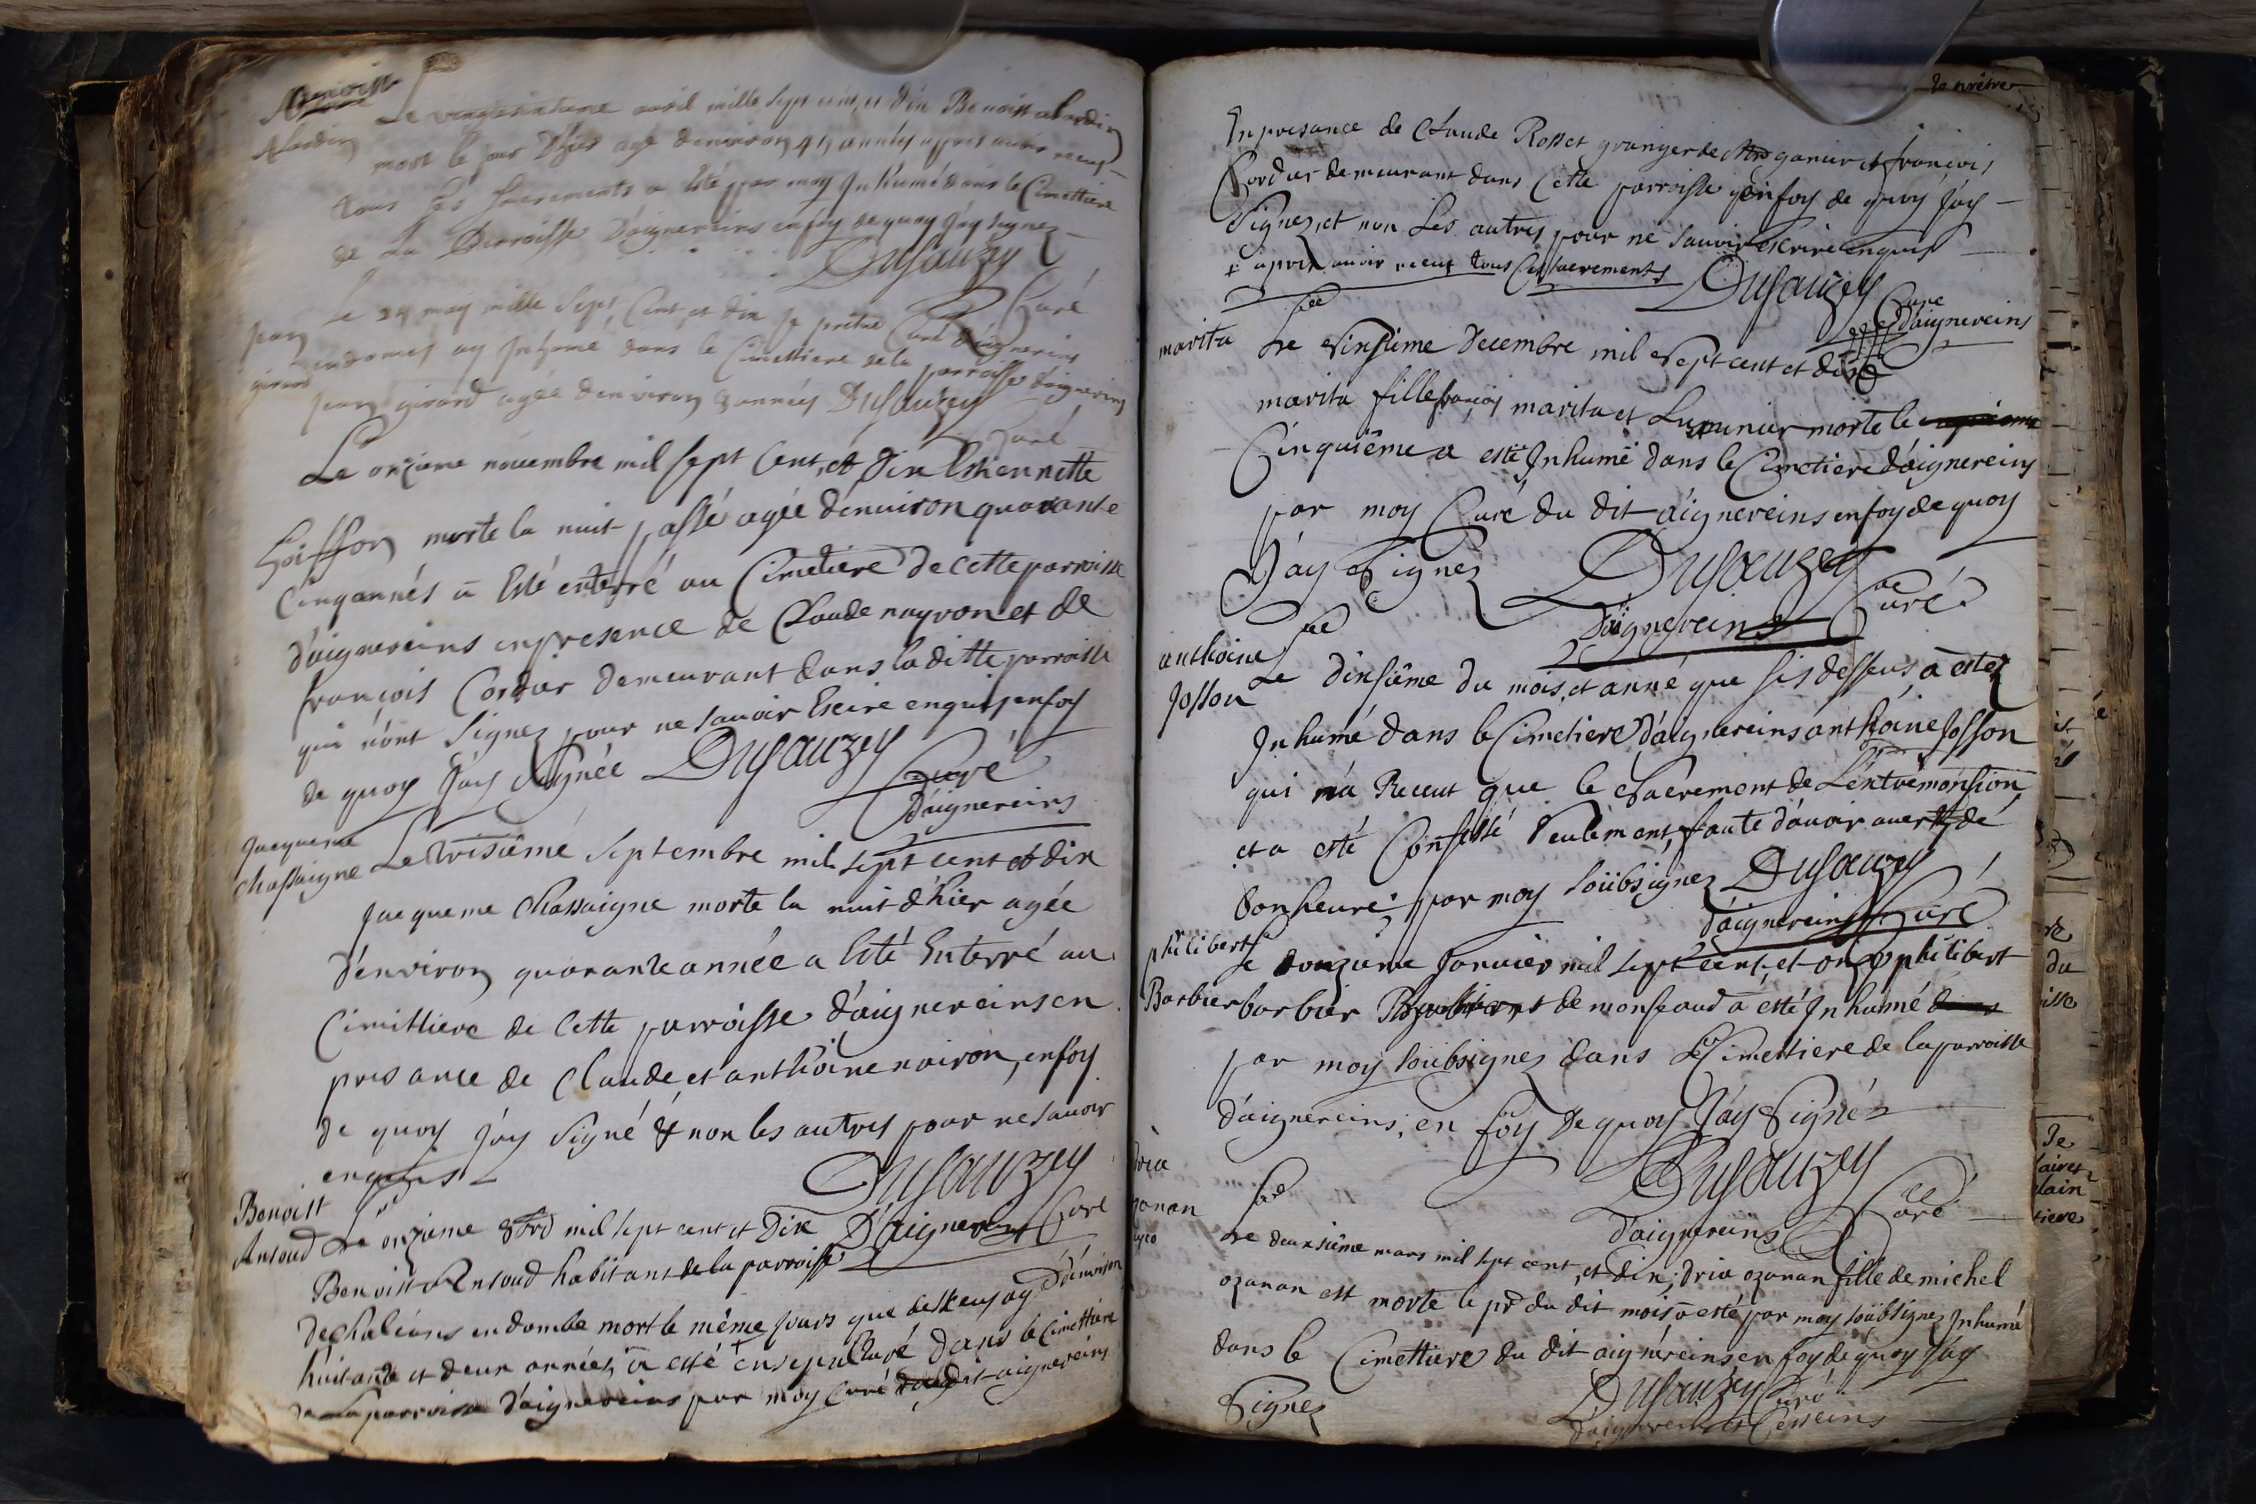 Benoist
Alardin
Le vingtsixieme avril mille sept cent, et dix Benoist alardin
mort le jour d'hier agé denviron 45 années apprès avoir receu
tous ses sacrements a esté par moy Inhumé dans le Cimettiere
de La Parroisse D'aignereins enfoy de quoy J'ay signez
Dusauzey
Curé
Jean
girard
Le 24 may mille Sept, Cent, et dix Je prêtre Curé D'aignereins
en dombes ay Inhumé dans le Cimettiere de la parroisse d'aignereins
Jean girard agée d'environ 3 années Dusauzey
Curé
Le onzieme nouembre mil sept Cent, et dix Estiennette
Goiffon morte la nuit passé agée d'enuiron quarante
Cinq annés a Esté enterré au Cimetiere de Cette parroisse
d'aignereins en presence de Claude nayron et de
françois Cordier demeurant dans la ditte parroisse
qui n'ont Signez pour ne sauoir Escire enquis enfoy
de quoy J'ay Signée Dusauzey
Curé
D'aignereins
Jacqueme
Chassaigne
Le troisiême Septembre mil sept cent et dix
Jacqueme Chassaigne morte la nuit d'hier agée
d'environ quarante année a Esté Enterré au
Cimittiere de Cette parroisse d'aignereins en
presance de Claude, et anthoine nairon, enfoy
de quoy J'ay Signé & non les autres pour ne sauoir
enquis
Dusauzey
Benoist
Ansoud
Le onzieme 8bre mil sept cent et Dix D'aignereins Curé
Benoist Ansoud habitant de la parroisse
de Chaleins en dombe mort le même jours que dessus ag d'enuiron
huitante et deux années, a esté ensepulturé dans le Cimettiere
de la parroisse D'aignereins par moy Curé dudit aignereins
de prêtre
En presance de Claude Rosset granger de garnier et françois
Cordier demeurant dans Cette parroisse enfoy de quoy J'ay
Signez, et non Les autres pour ne sauoir escrire enquis
+ apres auoir receu tous Ces sacrements Dusauzey
Curé
d'aignereins
marita
Le sinsième Decembre mil sept cent et dix
marita fille françois marita et morte le
Cinquiême a esté Inhumé dans le Cimetiere d'aignereins
par moy Curé du dit aignereins enfoy de quoy
J'ay Signez Dusauzey
D'aignereins Curé
anthoine
Josson
Le dixsiême du mois, et anné que sis dessus, a estez
Inhumé dans le Cimetiere d'aignereins anthoine Josson
qui n'a Receut que le sacrement de L'extrêmonsion
et a esté Confessé seulement, faute d'auoir auerty de
bonheure; par moy soübsignez Dusauzey
d'aignereins Curé
philibert
Barbier
Le douzieme Januier mil sept cent, et onze philibert
barbier de monseaud a esté Inhumé
par moy soübsignez dans Le Cimettiere de la parroisse
d'aignereins, en foy de quoy J'ay Signéz
Dusauzey
d'aignereins Curé
Le deuxsiême mars mil sept cent, et dix; dria ozanan fille de michel
ozanan est morte le pr du dit mois a esté par moy soübsignez Inhumé
dans le Cimettiere du dit aignéreins en foy de quoy J'ay
Signez
Dusauzey Curé
D'aignereins et Cesseins